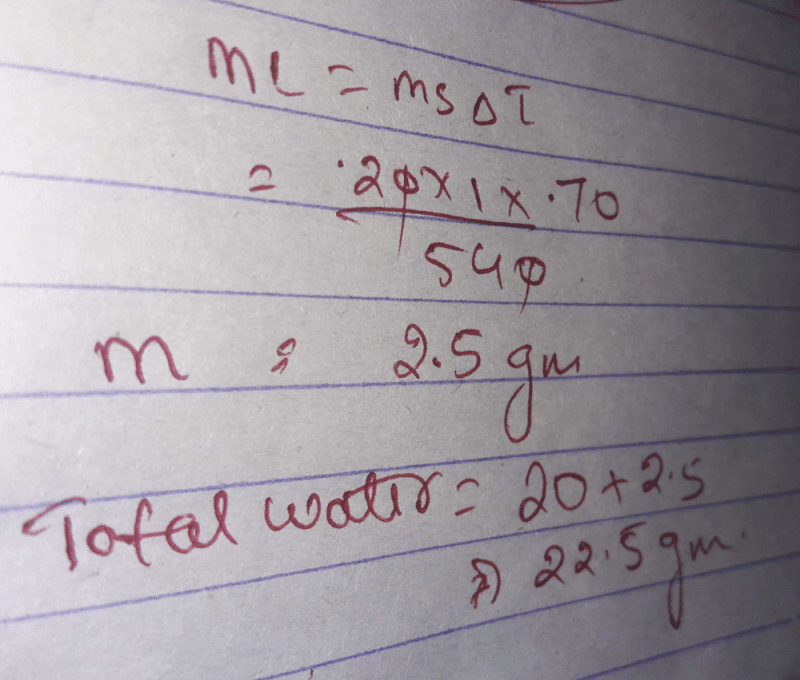 mL = msΔT
= .20 x 1 x .70
540
m = 2.5 gm
Total water = 20 + 2.5
⇒ 22.5 gm.